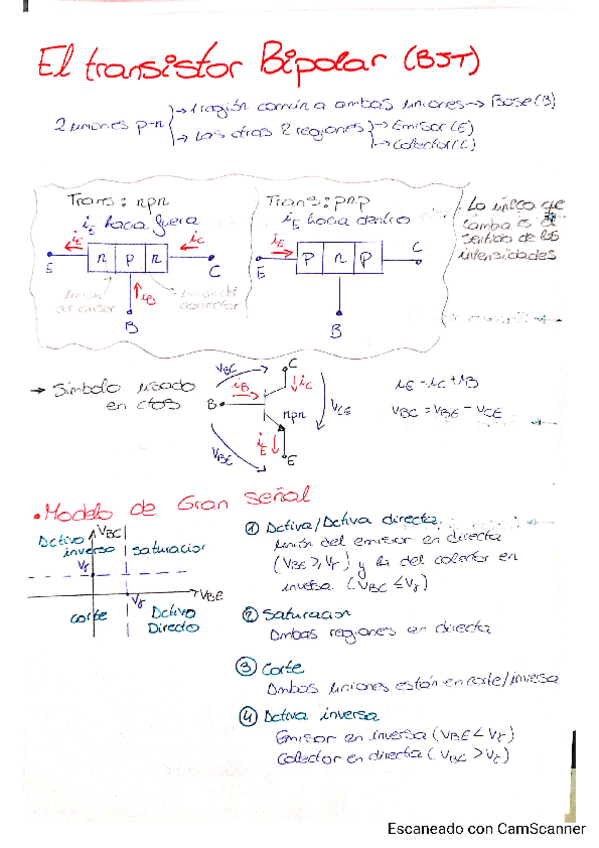 El transistor Bipolar (BJT)
2 uniones p-n
→ 1 región común a ambas uniones → Base (B)
→ Las otras 2 regiones
→ Emisor (E)
→ Colector (C)
Trans: npn
iE hacia fuera
iE
iC
E
n
p
n
C
iB
B
unión
del emisor
unión del
colector
Trans: pnp
iE hacia dentro
iE
E
p
n
p
C
B
Lo único que
cambia es el
sentido de las
intensidades
→ Símbolo usado
en ctos
VBC
C
iB
iC
B
npn
VCE
iE
VBE
E
iE = iC + iB
VBC = VBE - VCE
• Modelo de Gran señal
Activo
inverso
VBC
saturacion
Vγ
Vγ
VBE
corte
Activo
Directo
① Activa/Activa directa
unión del emisor en directa
(VBE ≥ Vγ) y la del colector en
inversa (VBC ≤ Vγ)
② Saturacion
Ambas regiones en directa
③ Corte
Ambas uniones están en corte/inversa
④ Activa inversa
Emisor en inversa (VBE < Vγ)
Colector en directa (VBC > Vγ)
Escaneado con CamScanner